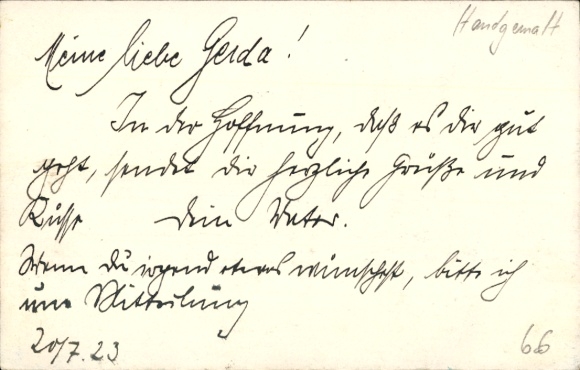 Handgemalt
Meine liebe Gerda!
In der Hoffnung, daß es dir gut
geht, sendet dir herzliche Grüße und
Küsse Dein Vater.
Wenn du irgend etwas wünschest, bitte ich
um Mitteilung
20/7.23
66